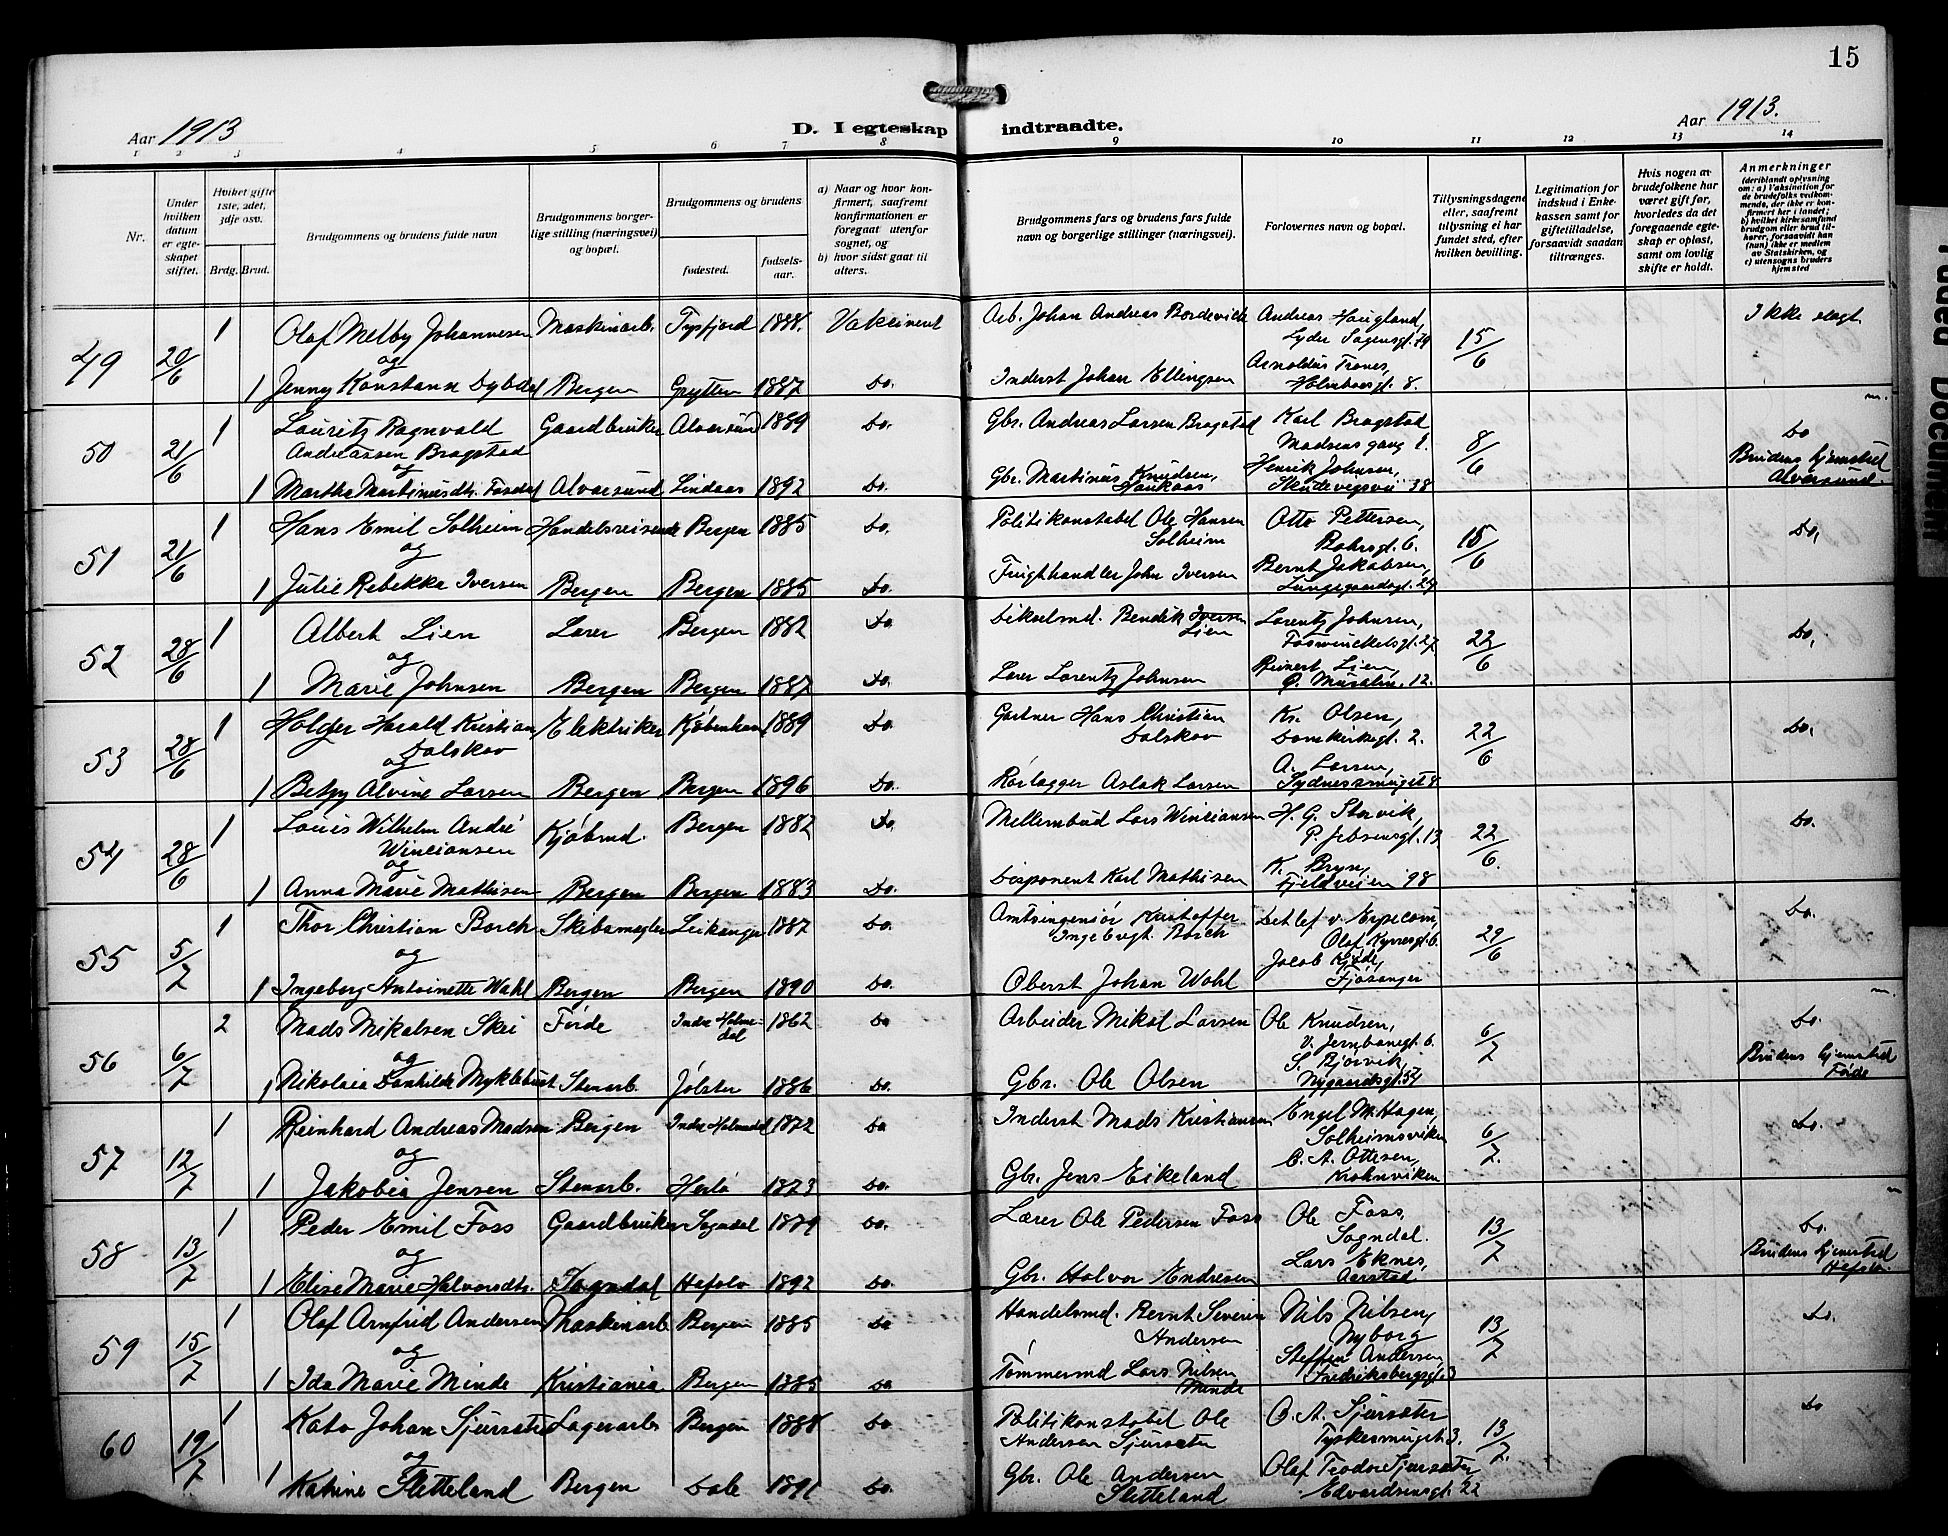 15
Aar 1913
D. I egteskap indtraadte.
Aar 1913.
1 2 3 4 5 6 7 8 9 10 11 12 13 14
Nr.
Under hvilken datum er egteskapet stiftet.
Hvilket gifte 1ste, 2det, 3dje osv.
Brdg. Brud.
Brudgommens og brudens fulde navn
Brudgommens borgerlige stilling (næringsvei) og bopæl.
Brudgommens og brudens
fødested.
fødselsaar.
a) Naar og hvor konfirmert, saafremt konfirmationen er foregaaet utenfor sognet, og
b) hvor sidst gaat til alters.
Brudgommens fars og brudens fars fulde navn og borgerlige stillinger (næringsvei).
Forlovernes navn og bopæl.
Tillysningsdagene eller, saafremt tillysning ei har fundet sted, efter hvilken bevilling.
Legitimation for indskud i Enkekassen samt for giftetilladelse, forsaavidt saadan tiltrænges.
Hvis nogen av brudefolkene har været gift før, hvorledes da det foregaaende egteskap er opløst, samt om lovlig skifte er holdt.
Anmerkninger (deriblandt oplysning om: a) Vaksination for de brudefolks vedkommende, der ikke er konfirmert her i landet; b) hvilket kirkesamfund brudgom eller brud tilhører, forsaavidt han (hun) ikke er medlem av Statskirken, og c) utensogns bruders hjemsted
49 20/6 1 Olaf Melby Johannesen Maskinarb. Tysfjord 1888. Vaksinert Arb. Johan Andreas Bordevick Andreas Haugland, Lyder Sagensgt. 29 15/6 Ikke slegt
og
1 Jenny Konstanse Dybdal Bergen Grytten 1887 Do. Inderst Johan Ellingsen Arnoldus Trones, Holmboesgt. 8.
50 21/6 1 Lauritz Ragnvald Andreassen Bragstad Gaardbruker Alversund 1889 Do. Gbr. Andreas Larsen Bragstad Karl Bragstad Madsens gang 1. 8/6 Do
og
1 Martha Martinusdtr. Fosdal Alversund Lindaas 1892 Do. Gbr. Martinus Knudsen, Haukaas Henrik Johnsen, Skudevigsvei 38 Brudens hjemsted Alversund.
51 21/6 1 Hans Emil Solheim Handelsreisende Bergen 1885 Do. Politikonstabel Ole Hansen Solheim Otto Pettersen, Bohrsgt. 6. 15/6 Do.
og
1 Julie Rebekka Iversen Bergen Bergen 1885 Do. Frugthandler John Iversen Bernt Jakobsen, Lungegaardsgt. 29
52 28/6 1 Albert Lien Lærer Bergen 1882 Do. Dikselmd. Bendik Iversen Lien Lorentz Johnsen, Fosswinckelsgt. 27 22/6 Do.
og
1 Marie Johnsen Bergen Bergen 1887 Do. Lærer Lorentz Johnsen Reinert Lien, Ø. Muralm. 12.
53 28/6 1 Holger Harald Kristian Dalskov Elektriker Kjøbenhavn 1889 Do. Gartner Hans Christian Dalskov Kr. Olsen, Domkirkegt. 2. 22/6 Do.
og
1 Betzy Alvine Larsen Bergen Bergen 1896 Do. Rørlægger Aslak Larsen A. Larsen, Sydnessmuget 8
54 28/6 1 Louis Wilhelm André Winciansen Kjøbmd. Bergen 1882 Do. Mellembud Lars Winciansen H. G. Storvik, P. Jebsensgt. 13 22/6. Do.
og
1 Anna Marie Mathisen Bergen Bergen 1883 Do. Disponent Karl Mathisen K. Bryn, Fjeldveien 98
55 5/7 1 Thor Christian Borch Skibsmægler Leikanger 1887 Do. Amtsingeniør Kristoffer Ingebrigt. Borch Detlef v. Erpecom, Olaf Kyrresgt. 6. 29/6 Do.
og
1 Ingeborg Antoinette Wahl Bergen Bergen 1890 Do. Oberst Johan Wahl Jacob Kjøde, Fjøsanger
56 6/7 2 Mads Mikalsen Skei Førde Indre Holmedal 1862 Do Arbeider Mikal Larsen Ole Knudsen, V. Jernbanegt. 6. 6/7 Do.
og
1 Nikolaia Danhilde Myklebust Stenarb. Jølster 1886 Do. Gbr. Ole Olsen S. Bjørvik, Nygaardsgt. 54 Brudens hjemsted Førde
57 12/7 1 Reinhard Andreas Madsen Bergen Indre Holmedal 1872 Do Inderst Mads Kristiansen Engel M. Hagen, Solheimsviken 6/7. Do.
og
1 Jakobia Jensen Stenarb. Herlø 1873 Do. Gbr. Jens Eikeland C. A. Ottesen, Krohnviken
58 13/7 1 Peder Emil Foss Gaardbruker Sogndal 1879 Do. Lærer Ole Pedersen Foss Ole Foss, Sogndal. 13/7 Do.
og
1 Elise Marie Halvorsdtr. Sogndal Hafslo 1892 Do. Gbr. Halvor Endresen Lars Eknes, Aarstad Brudens hjemsted Hafslo.
59 15/7 1 Olaf Arnfrid Andersen Maskinarb Bergen 1885 Do Handelsmd. Bernt Severin Andersen Nils Nilsen, Nyborg 13/7 Do.
og
1 Ida Marie Minde Kristiania Bergen 1885 Do Tømmermd Lars Nilsen Minde Steffen Andersen, Fredriksbergsgt. 3
60 19/7 1 Kato Johan Sjursæter Lagerarb Bergen 1888 Do. Politikonstabel Ole Andersen Sjursæter O. A. Sjursæter Tyskesmuget 3. 13/7. Do
og
1 Katrine Sletteland Bergen Dale 1891 Do. Gbr. Ole Andersen Sletteland Olaf Teodor Sjursæter Edvardsensgt. 22